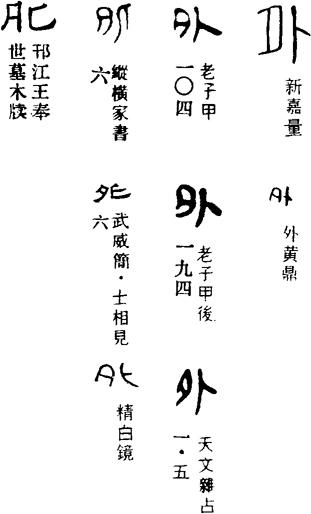 外
新嘉量
外
外黃鼎
外
老子甲
一〇四
外
老子甲後
一九四
外
天文雜占
一·五
外
縱橫家書
六
外
武威簡·士相見
六
外
精白鏡
外
邗江王奉
世墓木牍